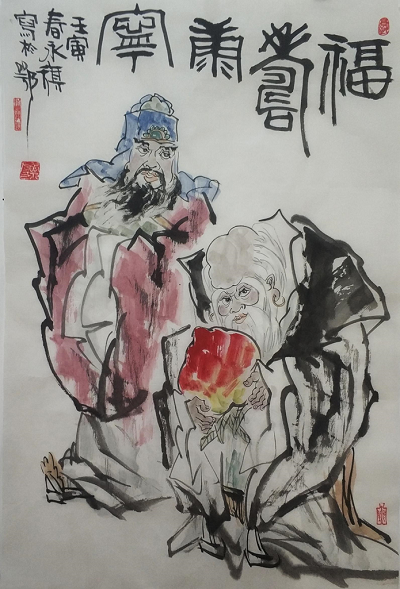 福壽康寧
壬寅
春永
寫於鄂